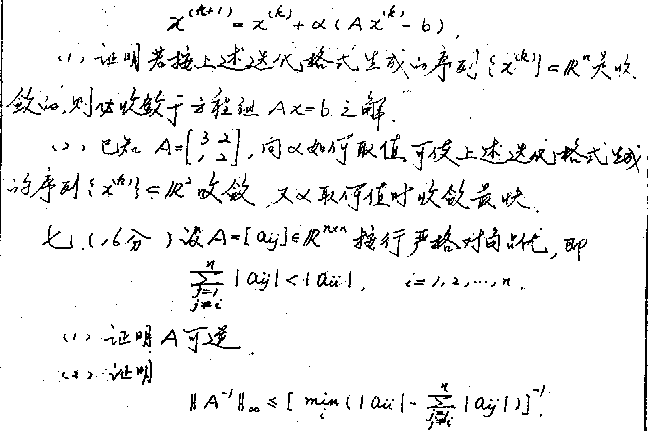 x^{(k+1)} = x^{(k)} + α(Ax^{(k)} - b),
(1) 证明若按上述迭代格式生成的序列{x^{(k)}}⊂R^n是收
敛的,则必收敛于方程组 Ax=b 之解.
(2) 已知 A=[3 2; 1 2], 问α如何取值可使上述迭代格式生成
的序列{x^{(k)}}⊂R^2收敛 又α取何值时收敛最快.
七.(16分) 设A=[aij]∈R^{n×n}按行严格对角占优, 即
\sum_{j=1, j≠i}^{n} |aij| < |aii|, i=1,2,…,n.
(1) 证明A可逆.
(2) 证明
‖A^{-1}‖_∞ ≤ [min_i (|aii| - \sum_{j=1, j≠i}^{n} |aij|)]^{-1}.